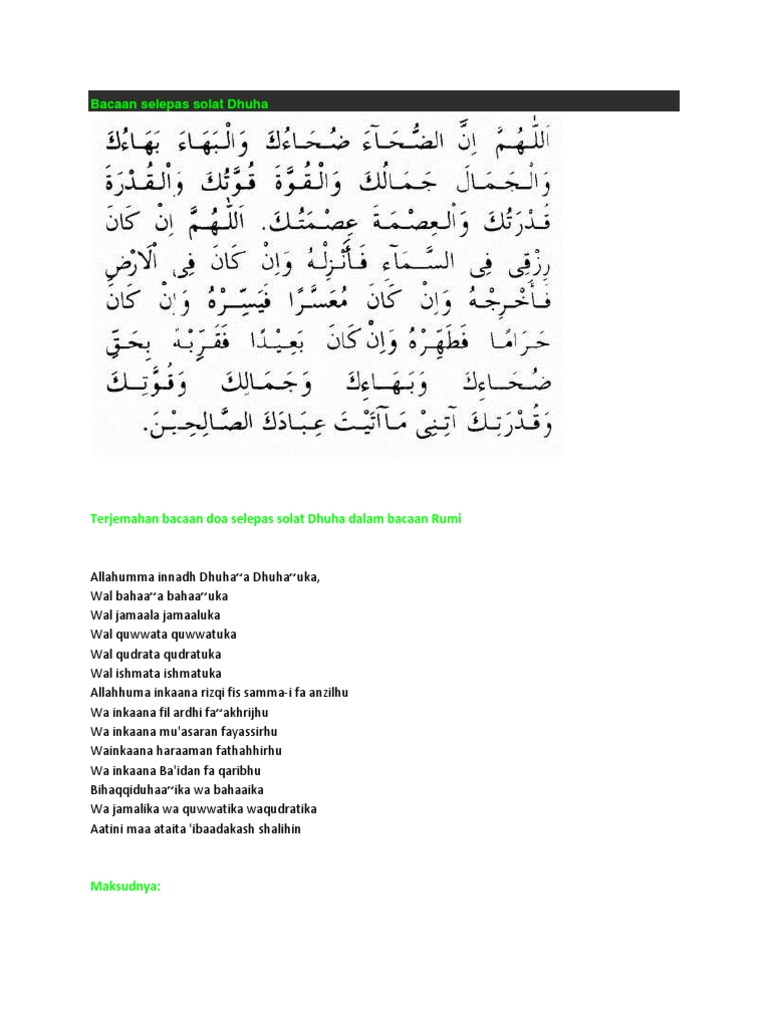 Bacaan selepas solat Dhuha
اَللّٰهُمَّ اِنَّ الضُّحَآءَ ضُحَاءُكَ وَالْبَهَاءَ بَهَاءُكَ
وَالْجَمَالَ جَمَالُكَ وَالْقُوَّةَ قُوَّتُكَ وَالْقُدْرَةَ
قُدْرَتُكَ وَالْعِصْمَةَ عِصْمَتُكَ. اَللّٰهُمَّ اِنْ كَانَ
رِزْقِى فِى السَّمَآءِ فَأَنْزِلْهُ وَاِنْ كَانَ فِى الْاَرْضِ
فَأَخْرِجْهُ وَاِنْ كَانَ مُعَسَّرًا فَيَسِّرْهُ وَاِنْ كَانَ
حَرَامًا فَطَهِّرْهُ وَاِنْ كَانَ بَعِيْدًا فَقَرِّبْهُ بِحَقِّ
ضُحَاءِكَ وَبَهَاءِكَ وَجَمَالِكَ وَقُوَّتِكَ
وَقُدْرَتِكَ آتِنِىْ مَآآتَيْتَ عِبَادَكَ الصَّالِحِيْنَ.
Terjemahan bacaan doa selepas solat Dhuha dalam bacaan Rumi
Allahumma innadh Dhuha~a Dhuha~uka,
Wal bahaa~a bahaa~uka
Wal jamaala jamaaluka
Wal quwwata quwwatuka
Wal qudrata qudratuka
Wal ishmata ishmatuka
Allahhuma inkaana rizqi fis samma-i fa anzilhu
Wa inkaana fil ardhi fa~akhrijhu
Wa inkaana mu'asaran fayassirhu
Wainkaana haraaman fathahhirhu
Wa inkaana Ba'idan fa qaribhu
Bihaqqiduhaa~ika wa bahaaika
Wa jamalika wa quwwatika waqudratika
Aatini maa ataita 'ibaadakash shalihin
Maksudnya: